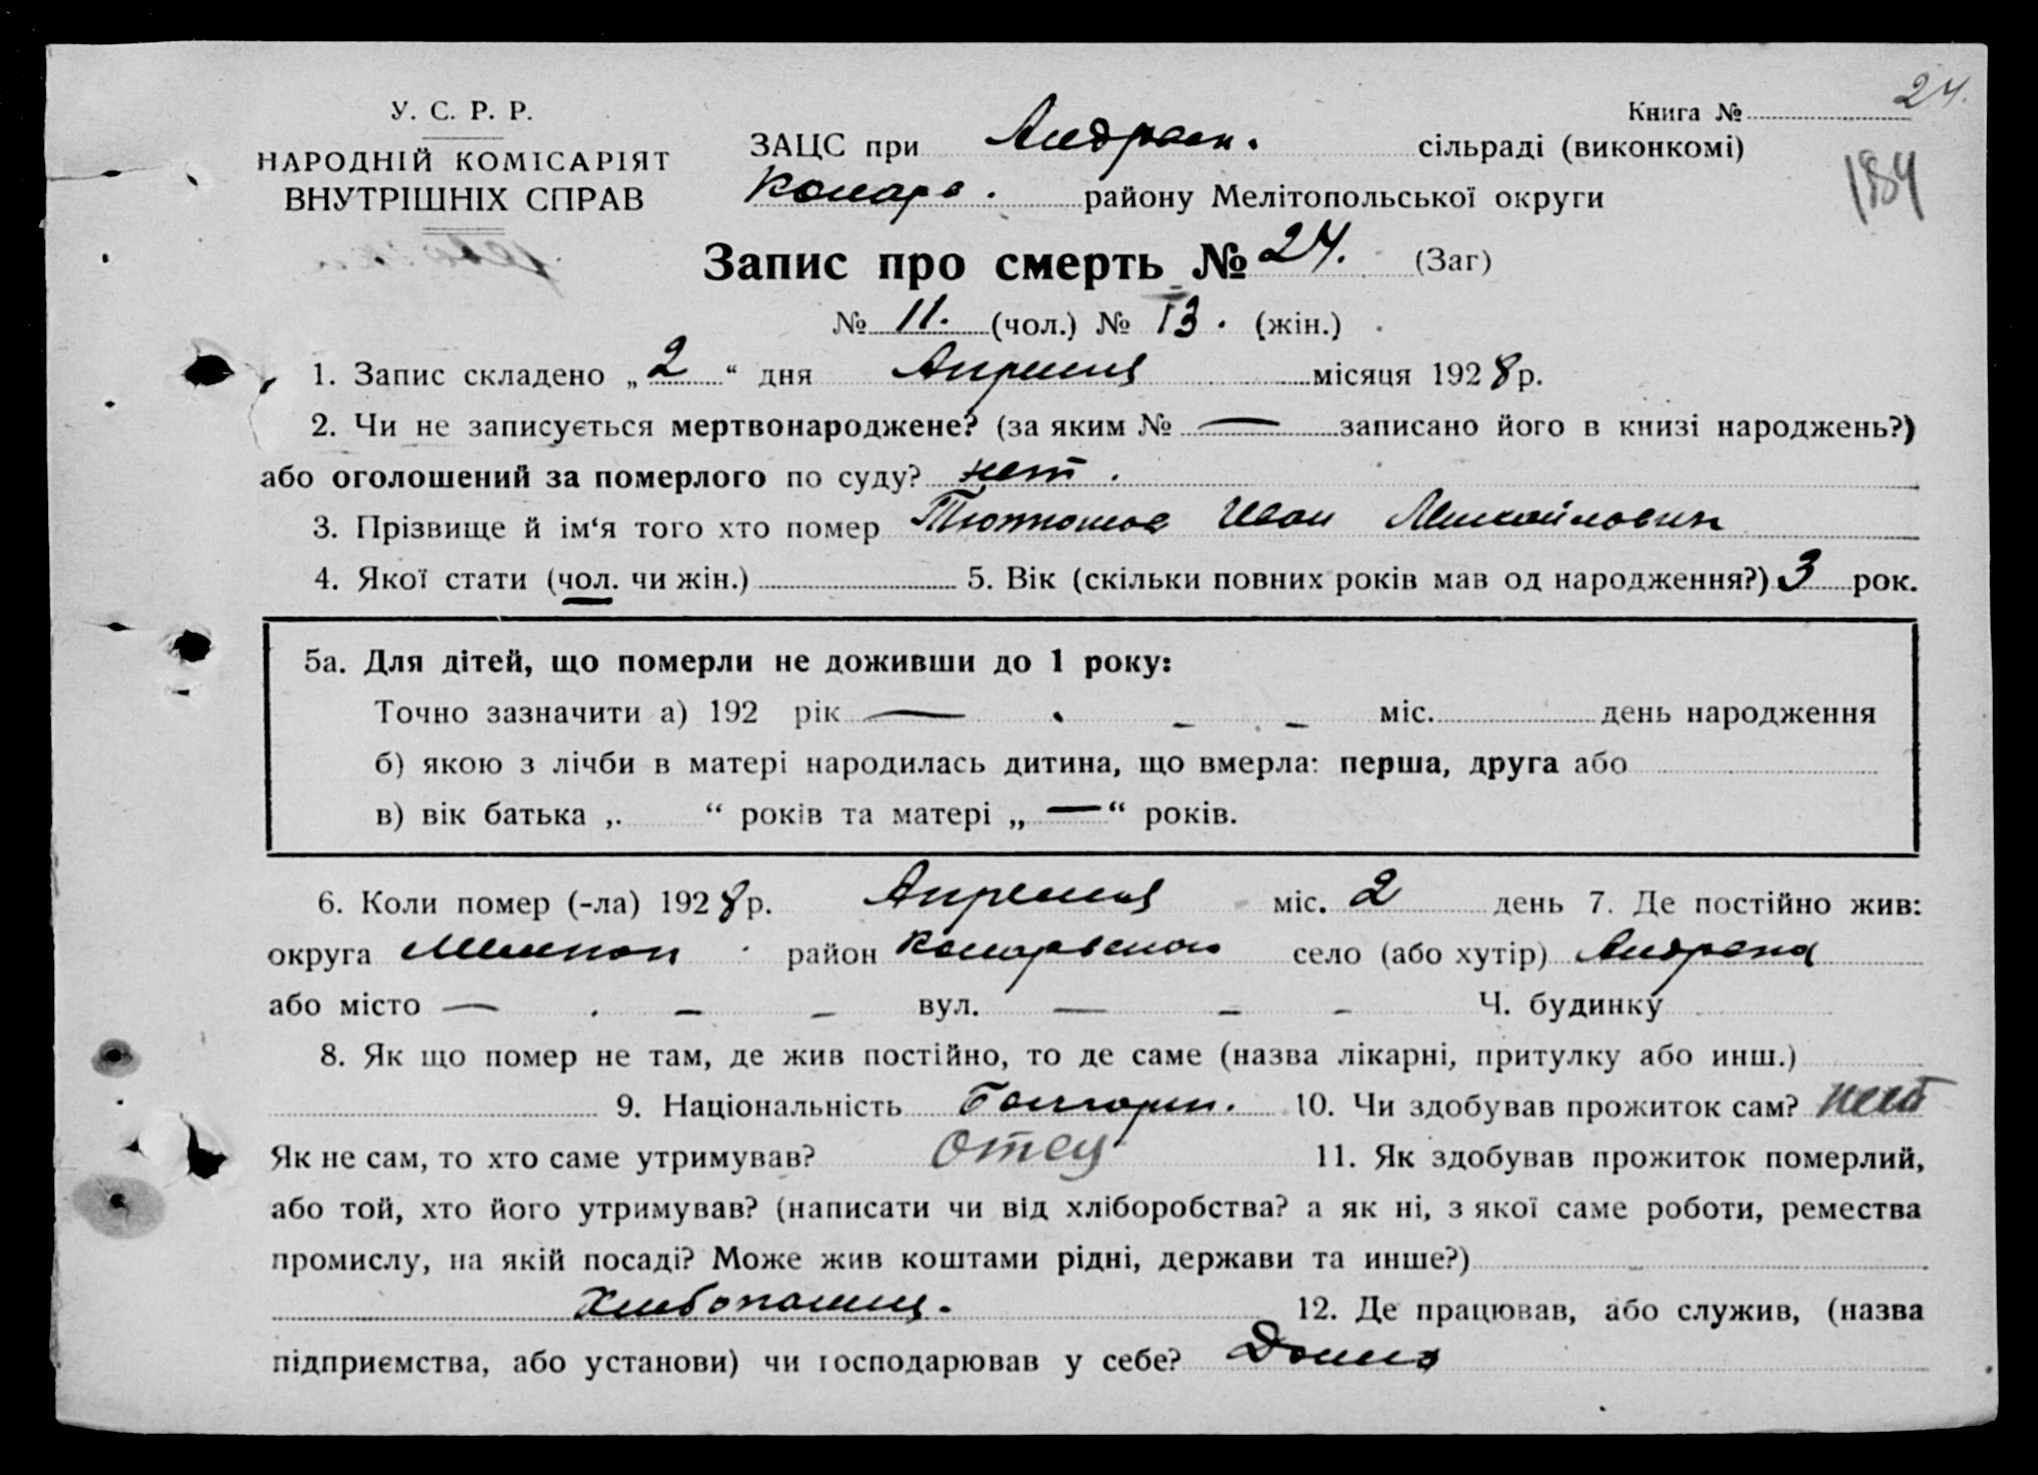 24.
У. С. Р. Р.
Книга №
НАРОДНІЙ КОМІСАРІЯТ
ВНУТРІШНІХ СПРАВ
ЗАЦС при Андров. сільраді (виконкомі)
Комар. району Мелітопольської округи
184
Запис про смерть № 24. (Заг)
№ 11. (чол.) № 13. (жін.)
1. Запис складено „2“ дня Апреля місяця 1928 р.
2. Чи не записується мертвонароджене? (за яким № — записано його в книзі народжень?)
або оголошений за померлого по суду? нет.
3. Прізвище й ім‘я того хто помер Иван Михайлович
4. Якої стати (чол. чи жін.) 5. Вік (скільки повних років мав од народження?) 3 рок.
5а. Для дітей, що померли не доживши до 1 року:
Точно зазначити а) 192 рік — міс. день народження
б) якою з лічби в матері народилась дитина, що вмерла: перша, друга або
в) вік батька „ “ років та матері „—“ років.
6. Коли помер (-ла) 1928 р. Апреля міс. 2 день 7. Де постійно жив:
округа Мелитоп район село (або хутір)
або місто — вул. — Ч. будинку
8. Як що помер не там, де жив постійно, то де саме (назва лікарні, притулку або инш.)
9. Національність Болгарин. 10. Чи здобував прожиток сам? нет
Як не сам, то хто саме утримував? отец 11. Як здобував прожиток померлий,
або той, хто його утримував? (написати чи від хліборобства? а як ні, з якої саме роботи, ремества
промислу, на якій посаді? Може жив коштами рідні, держави та инше?)
Хлебопашец. 12. Де працював, або служив, (назва
підприємства, або установи) чи господарював у себе? Дома